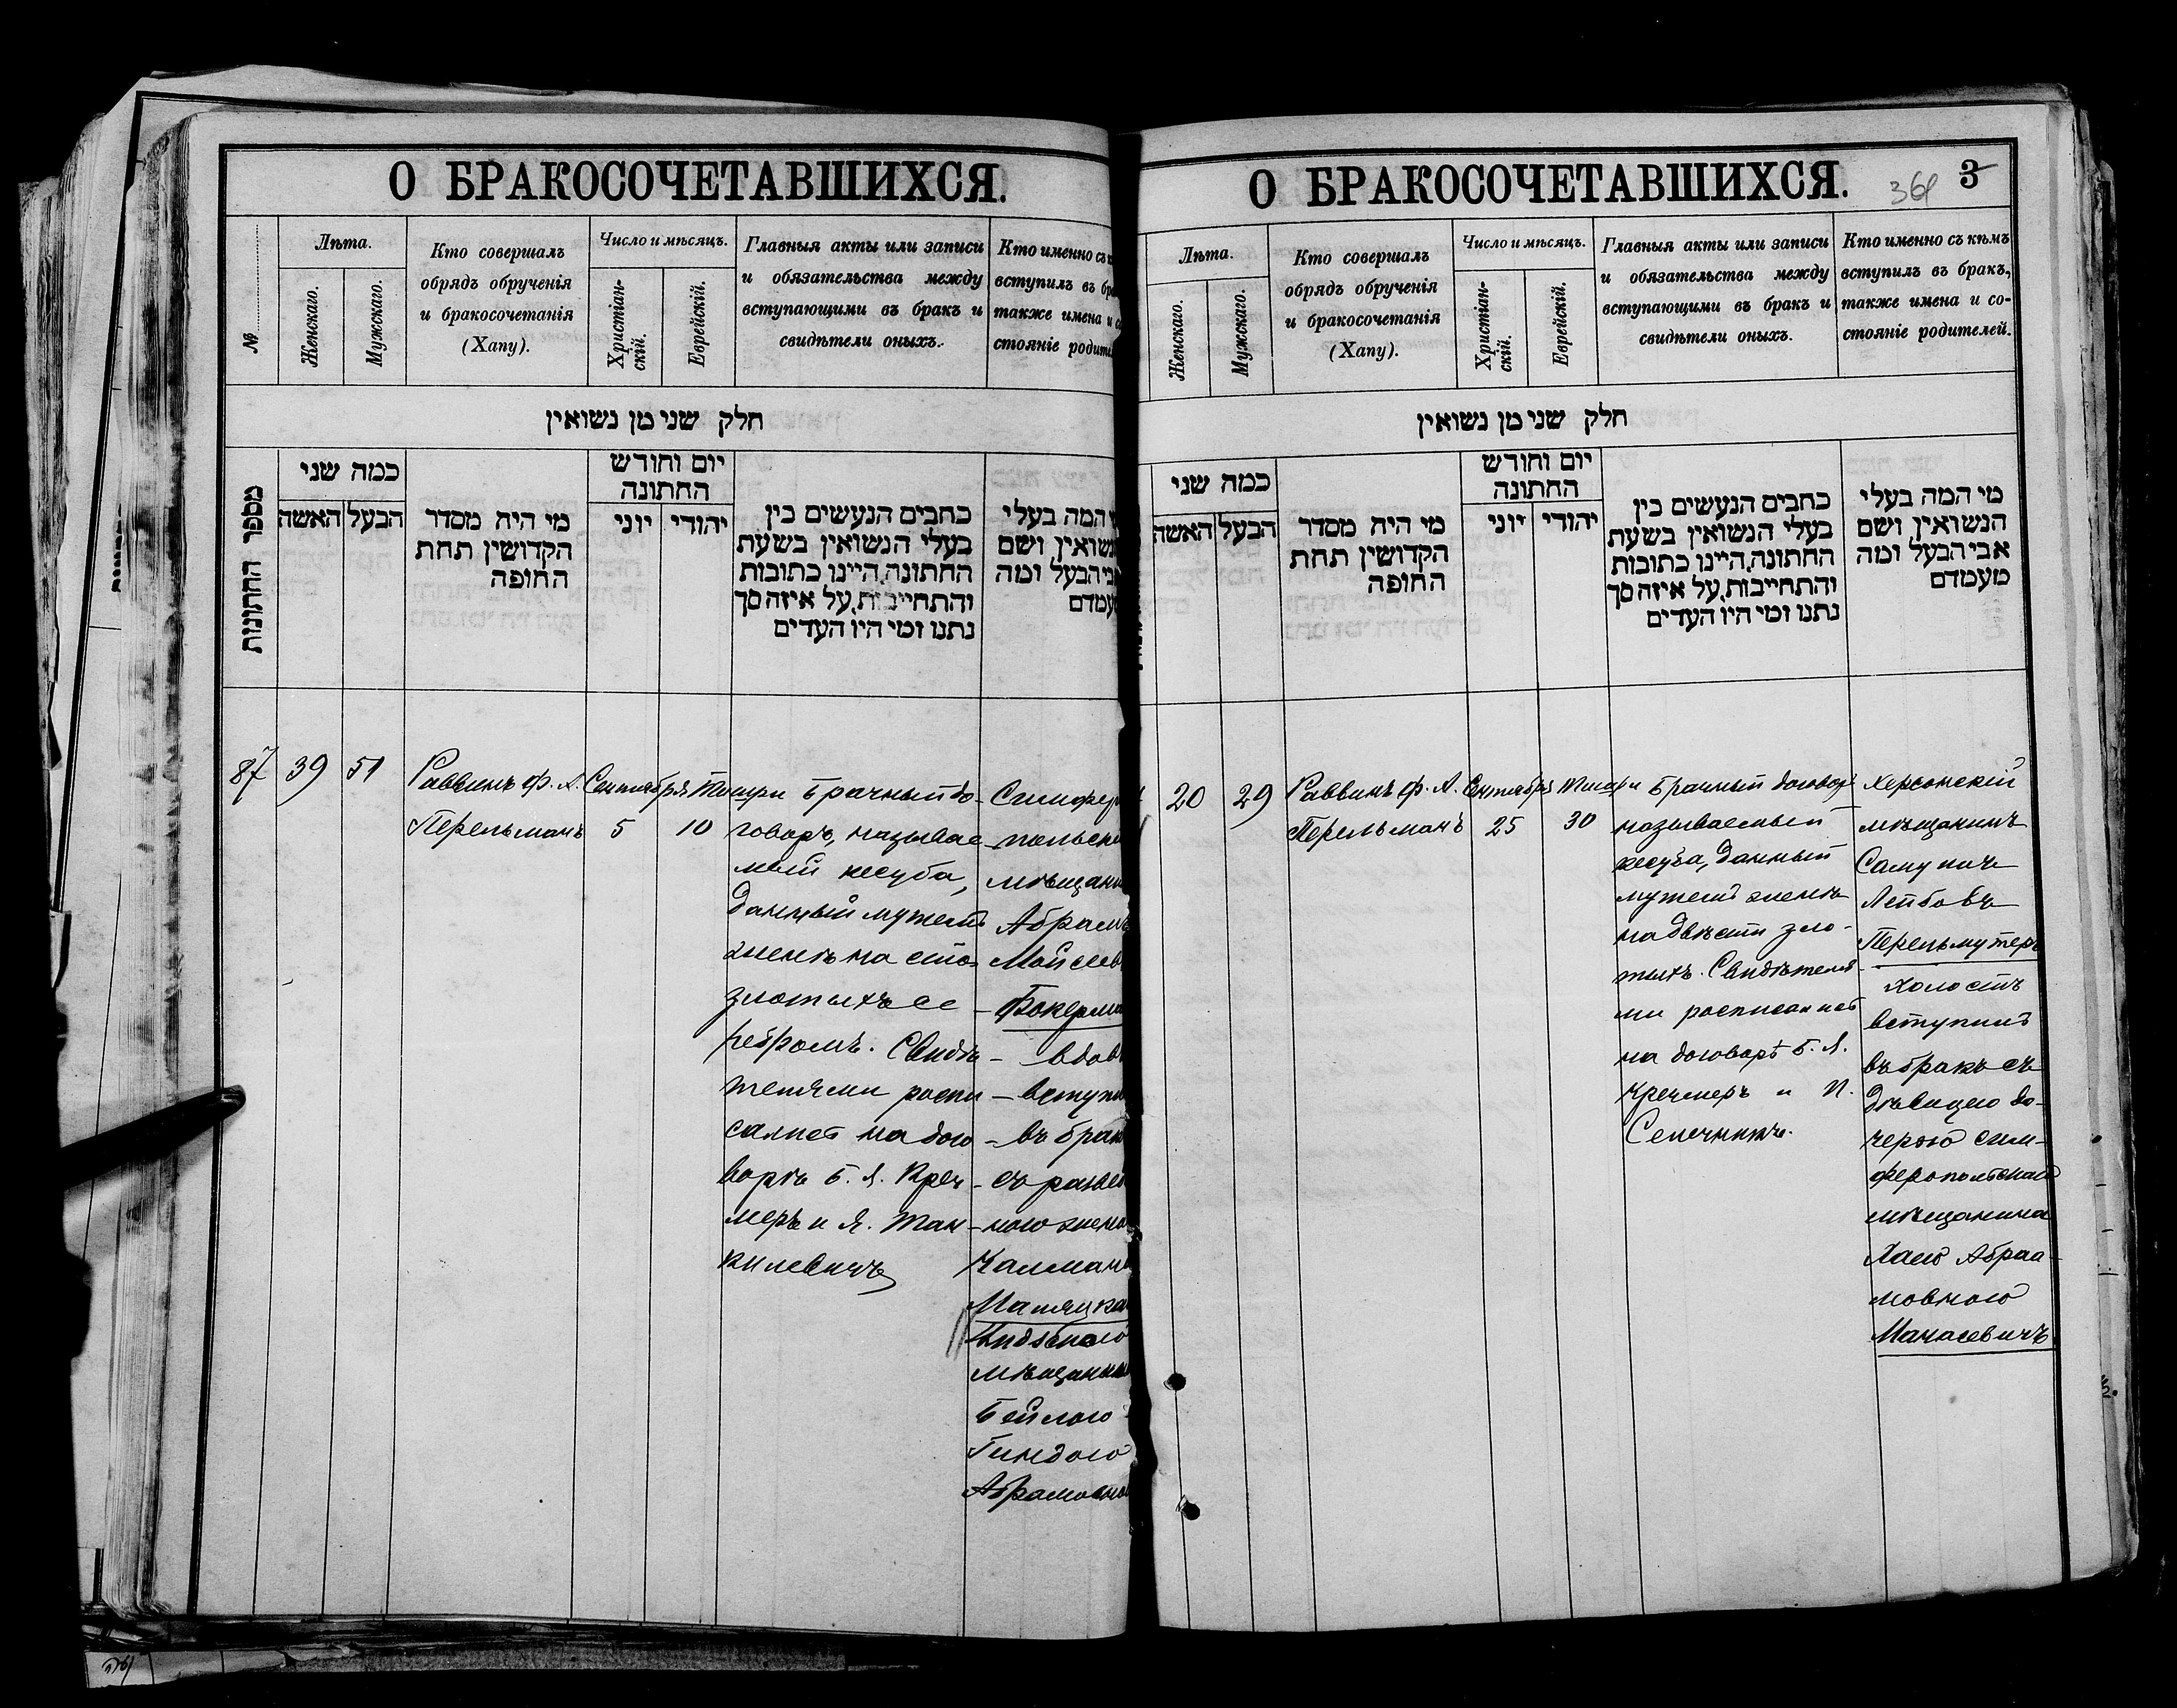 О БРАКОСОЧЕТАВШИХСЯ.
№
Лѣта.
Женскаго.
Мужскаго.
Кто совершалъ
обрядъ обрученія
и бракосочетанія
(Хапу).
Число и мѣсяцъ.
Христіан-
скій.
Еврейскій.
Главныя акты или записи
и обязательства между
вступающими въ бракъ и
свидѣтели оныхъ.
Кто именно съ
вступилъ въ
также имена и
стояніе
חלק שני מן נשואין
מספר החתונות
כמה שני
האשה
הבעל
מי היה מסדר
הקדושין תחת
החופה
יום וחודש
החתונה
יוני
יהודי
כתבים הנעשים בין
בעלי הנשואין בשעת
החתונה, היינו כתובות
והתחייבות, על איזה סך
נתנו ומי היו העדים
המה בעלי
ושם
ומה
87
39
51
Раввинъ Ф. А.
Перельманъ
Сентября
5
Тишри
10
Брачный до-
говоръ, называе-
мый кесуба,
данный мужемъ
женѣ на сто
злотыхъ се-
ребромъ. Свидѣ-
телями роспи-
сались на дого-
ворѣ Б. Я. Креч-
меръ и Я. Тан-
килевичъ
Абрамъ
вступи
въ бракъ
съ
Бейлою
Гиндою
О БРАКОСОЧЕТАВШИХСЯ.
3
Лѣта.
Женскаго.
Мужскаго.
Кто совершалъ
обрядъ обрученія
и бракосочетанія
(Хапу).
Число и мѣсяцъ.
Христіан-
скій.
Еврейскій.
Главныя акты или записи
и обязательства между
вступающими въ бракъ и
свидѣтели оныхъ.
Кто именно съ кѣмъ
вступилъ въ бракъ,
также имена и со-
стояніе родителей.
חלק שני מן נשואין
כמה שני
האשה
הבעל
מי היה מסדר
הקדושין תחת
החופה
יום וחודש
החתונה
יוני
יהודי
כתבים הנעשים בין
בעלי הנשואין בשעת
החתונה, היינו כתובות
והתחייבות, על איזה סך
נתנו ומי היו העדים
מי המה בעלי
הנשואין, ושם
אבי הבעל ומה
מעמדם
20
29
Раввинъ Ф. А.
Перельманъ
Сентября
25
Тишри
30
Брачный договоръ
называемый
кесуба, данный
мужемъ женѣ
на двѣсти зло-
тыхъ. Свидѣтеля-
ми росписались
на договорѣ Б. Я.
Кречмеръ и И.
Херсонскій
мѣщанинъ
Самуилъ
Лейбовъ
Перельмутеръ
холостъ
вступилъ
въ бракъ съ
дѣвицею до-
черью сим-
феропольскаго
мѣщанина
Хаею Абраа-
мовною
Манасевичъ